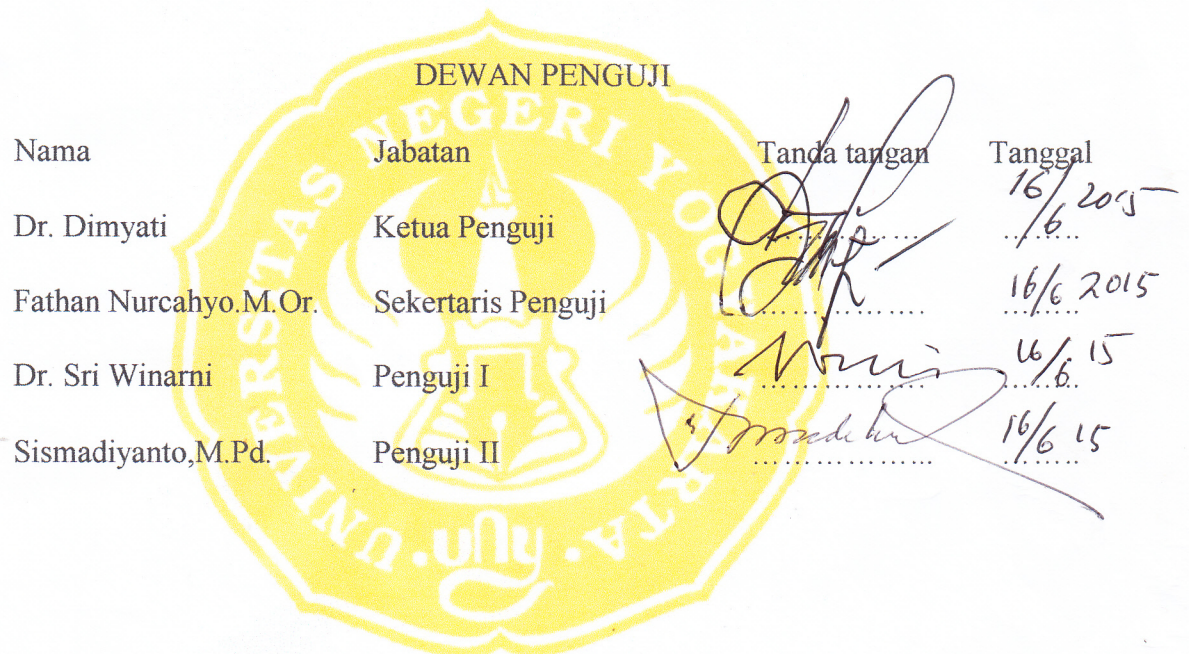 DEWAN PENGUJI
Nama Jabatan Tanda tangan Tanggal
Dr. Dimyati Ketua Penguji ................ 16/6 2015
Fathan Nurcahyo.M.Or. Sekertaris Penguji ................ 16/6 2015
Dr. Sri Winarni Penguji I ................ 16/6 15
Sismadiyanto,M.Pd. Penguji II ................ 16/6 15
UNIVERSITAS NEGERI YOGYAKARTA
uny